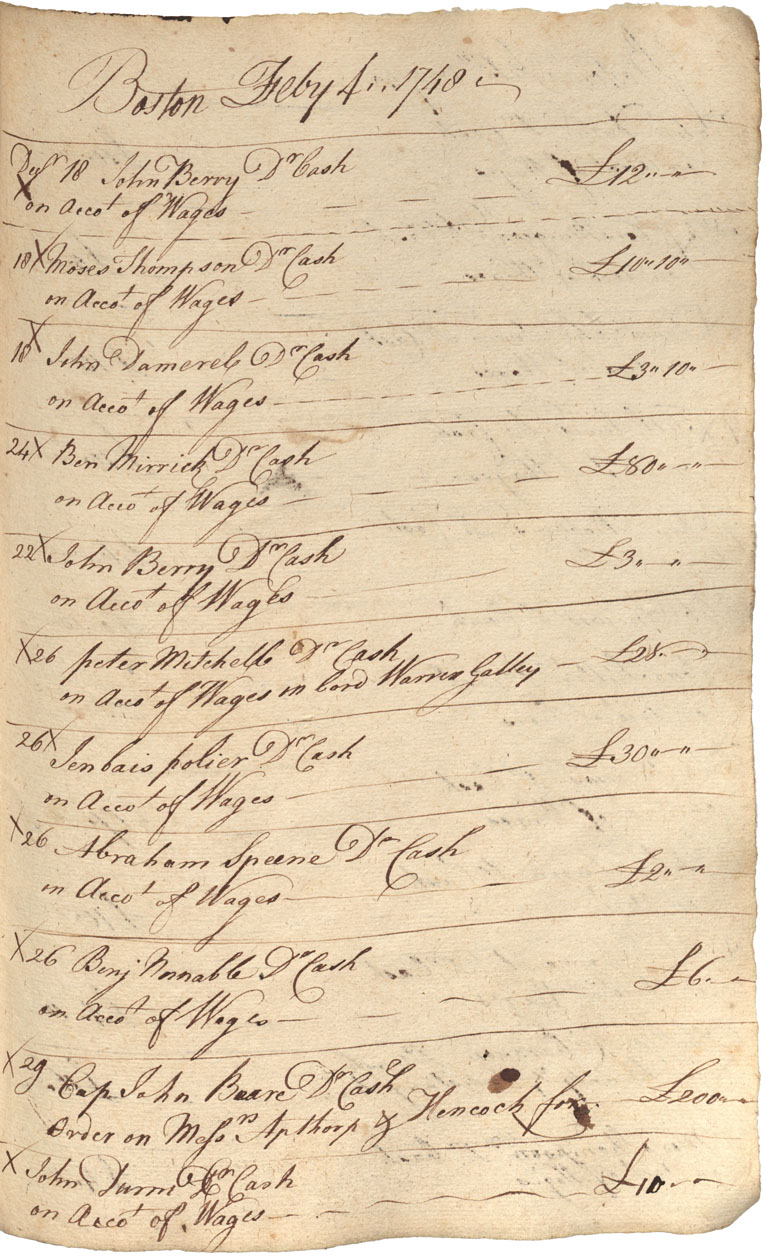 Boston Feby 4,, 1748
Decr 18 John Berry Dr Cash £12,,-,,
X on Accot of Wages
18 X Moses Thompson Dr Cash £10,,10,,
on Accot of Wages
18 X John Damerele Dr Cash £3,,10,,
on Accot of Wages
24 X Ben Mirrick Dr Cash £80,,-,,
on Accot of Wages
22 X John Berry Dr Cash £3,,-,,
on Accot of Wages
X 26 peter Mitchelle Dr Cash £28,,
on Accot of Wages in Lord Warren Galley
26 X Jenbais polier Dr Cash £30,,-,,
on Accot of Wages
X 26 Abraham Speene Dr Cash £2,,-,,
in Accot of Wages
X 26 Benj Nonable Dr Cash £6,,-,,
on Accot of Wages
X 29 Cap John Beare Dr Cash £200,,-,,
Order on Messrs Apthorp & Hencock for
X John Dunn Dr Cash £10,,-,,
on Accot of Wages